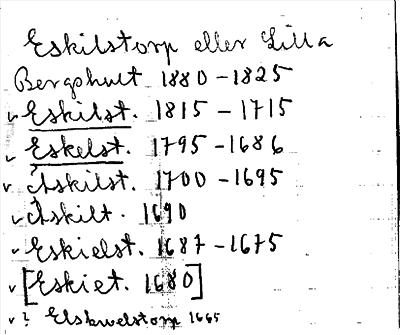 Eskilstorp eller Lilla
Bergshult 1880-1825
v Eskilst. 1815-1715
v Eskelst. 1795-1686
v Askilst. 1700-1695
v Askilt. 1690
v Eskielst. 1687-1675
v [Eskiet. 1680]
v ? Elskwelstorp 1665